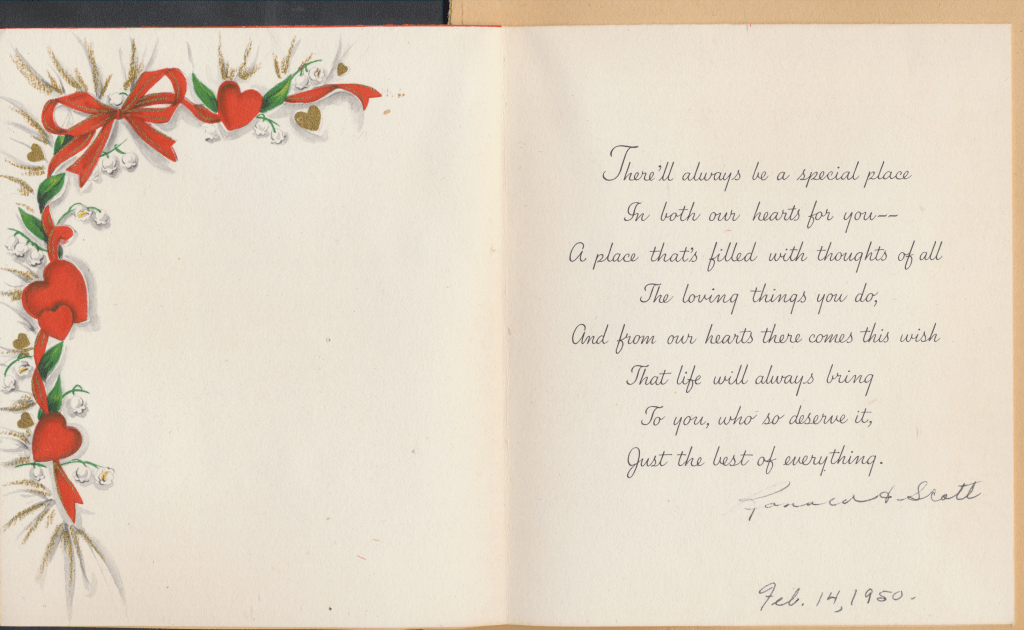 There'll always be a special place
In both our hearts for you--
A place that's filled with thoughts of all
The loving things you do,
And from our hearts there comes this wish
That life will always bring
To you, who so deserve it,
Just the best of everything.
Scott
Feb. 14, 1950.